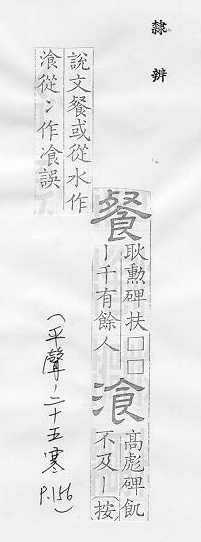 隸辨
餐
耿勲碑扶□□
丨千有餘人
湌
高彪碑飢
不及丨〔按〕
說文餐或從水作
湌從冫作飡誤
(平聲-二十五寒
P.156)